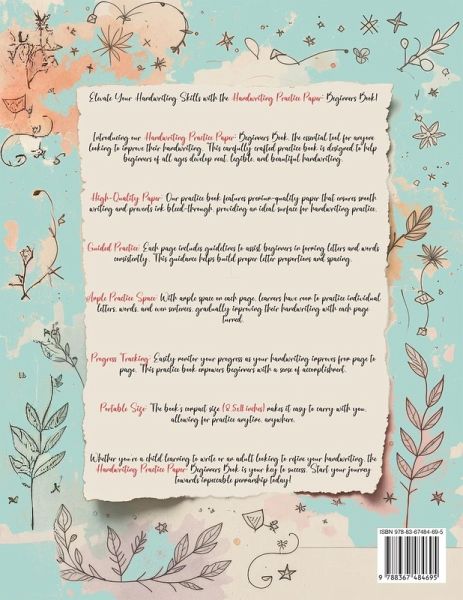 Elevate Your Handwriting Skills with the Handwriting Practice Paper: Beginners Book!
Introducing our Handwriting Practice Paper: Beginners Book, the essential tool for anyone
looking to improve their handwriting. This carefully crafted practice book is designed to help
beginners of all ages develop neat, legible, and beautiful handwriting.
High-Quality Paper: Our practice book features premium-quality paper that ensures smooth
writing and prevents ink bleed-through, providing an ideal surface for handwriting practice.
Guided Practice: Each page includes guidelines to assist beginners in forming letters and words
consistently. This guidance helps build proper letter proportions and spacing.
Ample Practice Space: With ample space on each page, learners have room to practice individual
letters, words, and even sentences, gradually improving their handwriting with each page
turned.
Progress Tracking: Easily monitor your progress as your handwriting improves from page to
page. This practice book empowers beginners with a sense of accomplishment.
Portable Size: The book's compact size (8.5x11 inches) makes it easy to carry with you,
allowing for practice anytime, anywhere.
Whether you're a child learning to write or an adult looking to refine your handwriting, the
Handwriting Practice Paper: Beginners Book is your key to success. Start your journey
towards impeccable penmanship today!
ISBN 978-83-67484-69-5
9 788367 484695